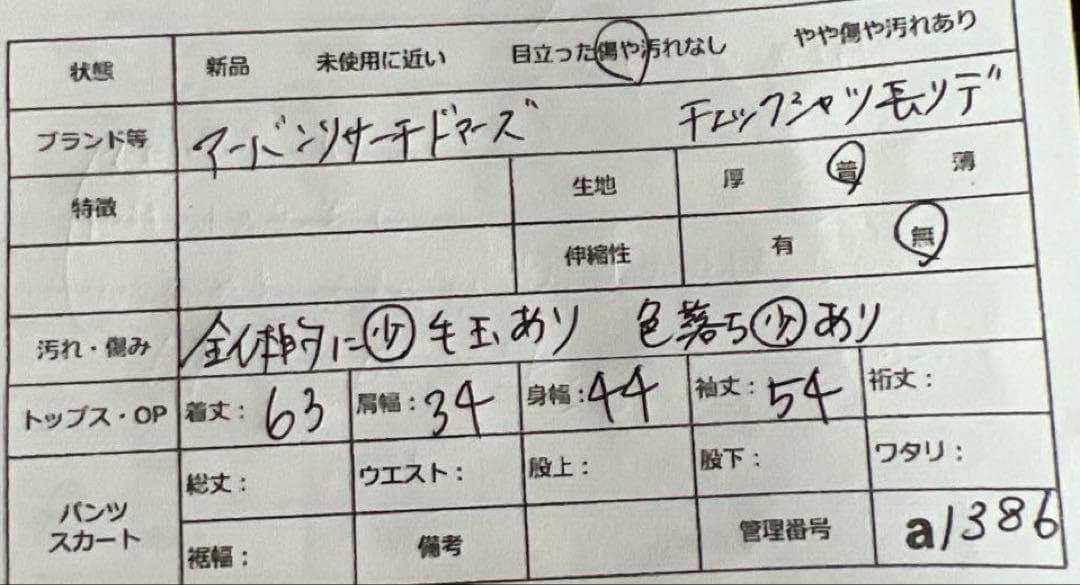 状態 新品 未使用に近い 目立った傷や汚れなし やや傷や汚れあり
ブランド等 アーバンリサーチドアーズ チェックシャツ
特徴 生地 厚 普 薄
伸縮性 有 無
汚れ・傷み 全体的に少毛玉あり 色落ち少あり
トップス・OP 着丈:63 肩幅:34 身幅:44 袖丈:54 裄丈:
パンツ スカート 総丈: ウエスト: 股上: 股下: ワタリ:
裾幅: 備考 管理番号 a1386